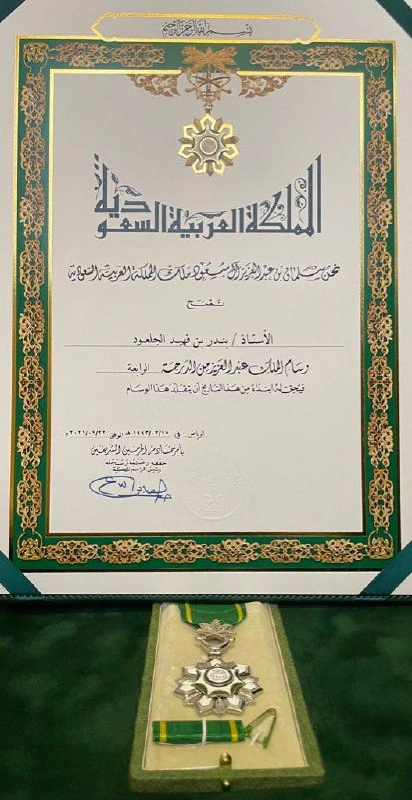 بسم الله الرحمن الرحيم
المملكة العربية السعودية
نحن سلمان بن عبدالعزيز آل سعود ملك المملكة العربية السعودية
نمنح
الأستاذ / بندر بن فهيد الجلعود
وسام الملك عبدالعزيز من الدرجة الرابعة
فيحق له ابتداء من هذا التاريخ أن يتقلد هذا الوسام
الرياض في: ١٤٤٣/٠٢/١٥ هـ الموافق ٢٠٢١/٠٩/٢٢ م
بأمر خادم الحرمين الشريفين
حفظه الله
رئيس المراسم الملكية